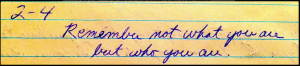 2-4
Remember not what you are
but who you are.